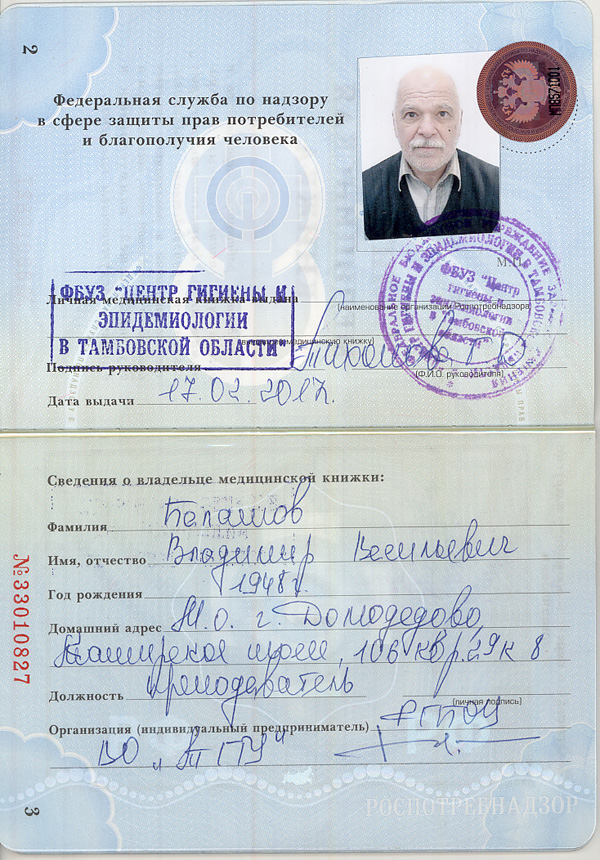 2
Федеральная служба по надзору
в сфере защиты прав потребителей
и благополучия человека
М.П.
ФБУЗ "ЦЕНТР ГИГИЕНЫ И
ЭПИДЕМИОЛОГИИ
В ТАМБОВСКОЙ ОБЛАСТИ"
Личная медицинская книжка выдана
(наименование организации Роспотребнадзора
медицинскую книжку)
ФБУЗ "Центр
гигиены и
эпидемиологии
в Тамбовской
области"
Подпись руководителя
(Ф.И.О. руководителя)
Дата выдачи 17.02.2017.
Сведения о владельце медицинской книжки:
Фамилия Балашов
Имя, отчество Владимир Васильевич
Год рождения 1948г.
Домашний адрес М.О. г. Домодедово,
Каширское шоссе, 106 кв. 29 к 8
Должность преподаватель
(личная подпись)
Организация (индивидуальный предприниматель) ФГБОУ
ВО „ТГТУ"
№33010827
РОСПОТРЕБНАДЗОР
3